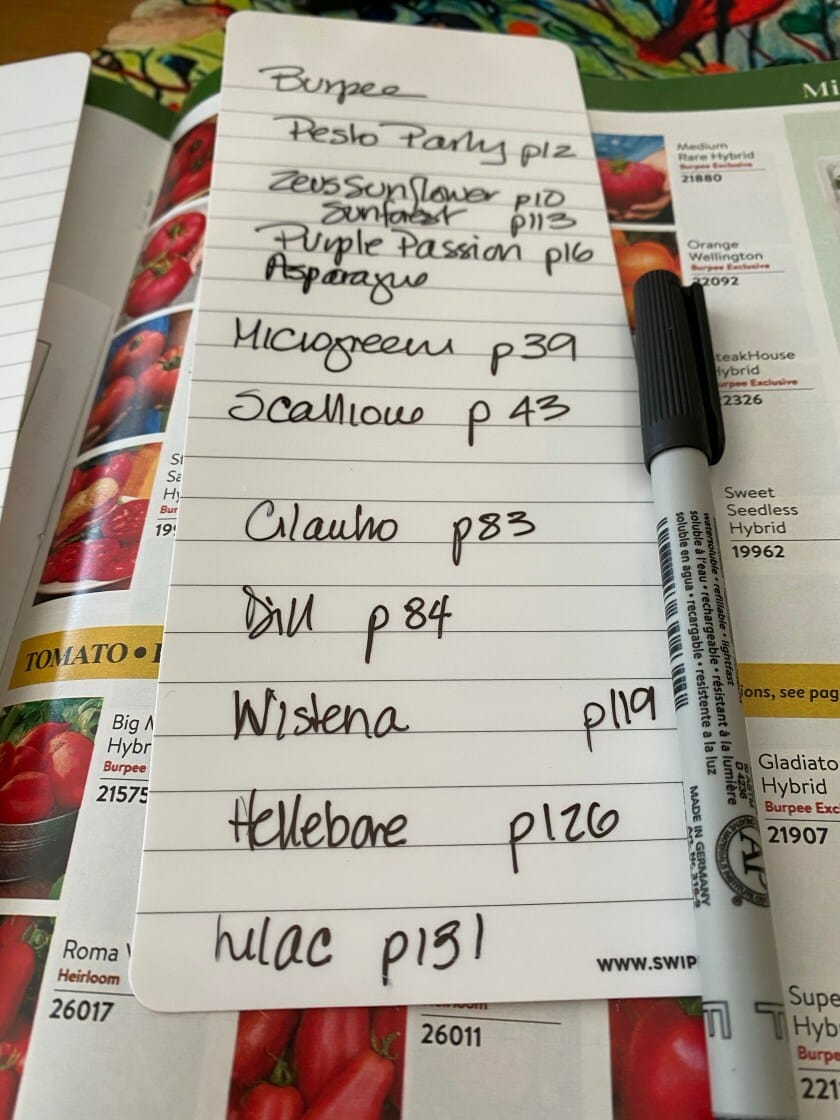 Burpee
Pesto Party p12
Zeus Sunflower p10
Sunforest p113
Purple Passion p16
Asparagus
Microgreens p39
Scallions p 43
Cilantro p83
Dill p 84
Wisteria p119
Hellebore p126
Lilac p131
WWW.SWIP
Mi
Medium
Rare Hybrid
Burpee Exclusive
21880
Orange
Wellington
Burpee Exclusive
22092
teakHouse
Hybrid
urpee Exclusive
2326
Sweet
Seedless
Hybrid
19962
ions, see pag
Gladiato
Hybrid
Burpee Exc
21907
Supe
Hyb
Burpe
221
St
Sa
Hy
Bur
199
TOMATO •
Big M
Hybr
Burpee
21575
Roma V
Heirloom
26017
Heirloom
26011
watersoluble • refillable • lightfast
soluble à l'eau • rechargeable • résistant à la lumière
soluble en agua • recargable • resistente a la luz
MADE IN GERMANY
Art. Nr. 316-9
ASTM
D 4236
AP